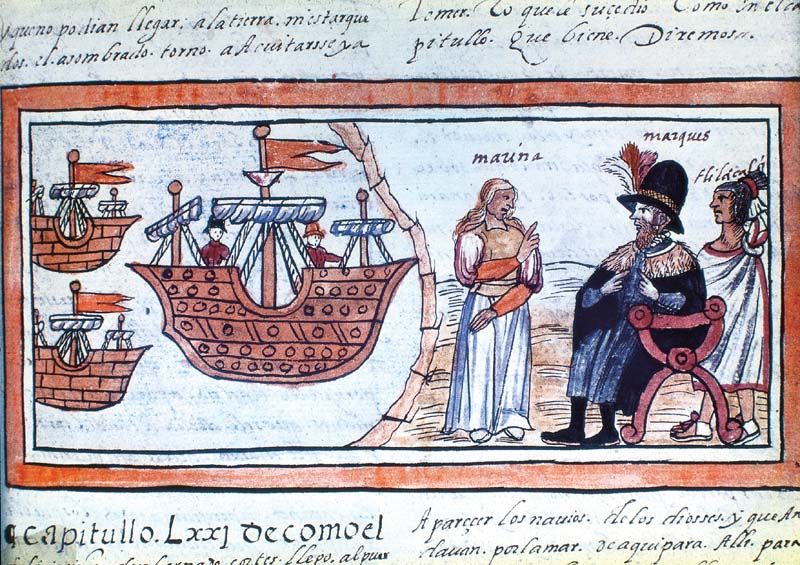 yqueno podian llegar. a la tierra. mestarque
dos. el asombrado. torno. a Acuitarsse ya
temer. Lo que le suçedio. Como en el ca
pitullo. que biene. Diremos.
marina
marques
capitullo. Lxxj de como el
cortes. llego. al puer
A pareçer los navios. de los diosses. y que An
davan. por la mar. de aqui para. Alli. para